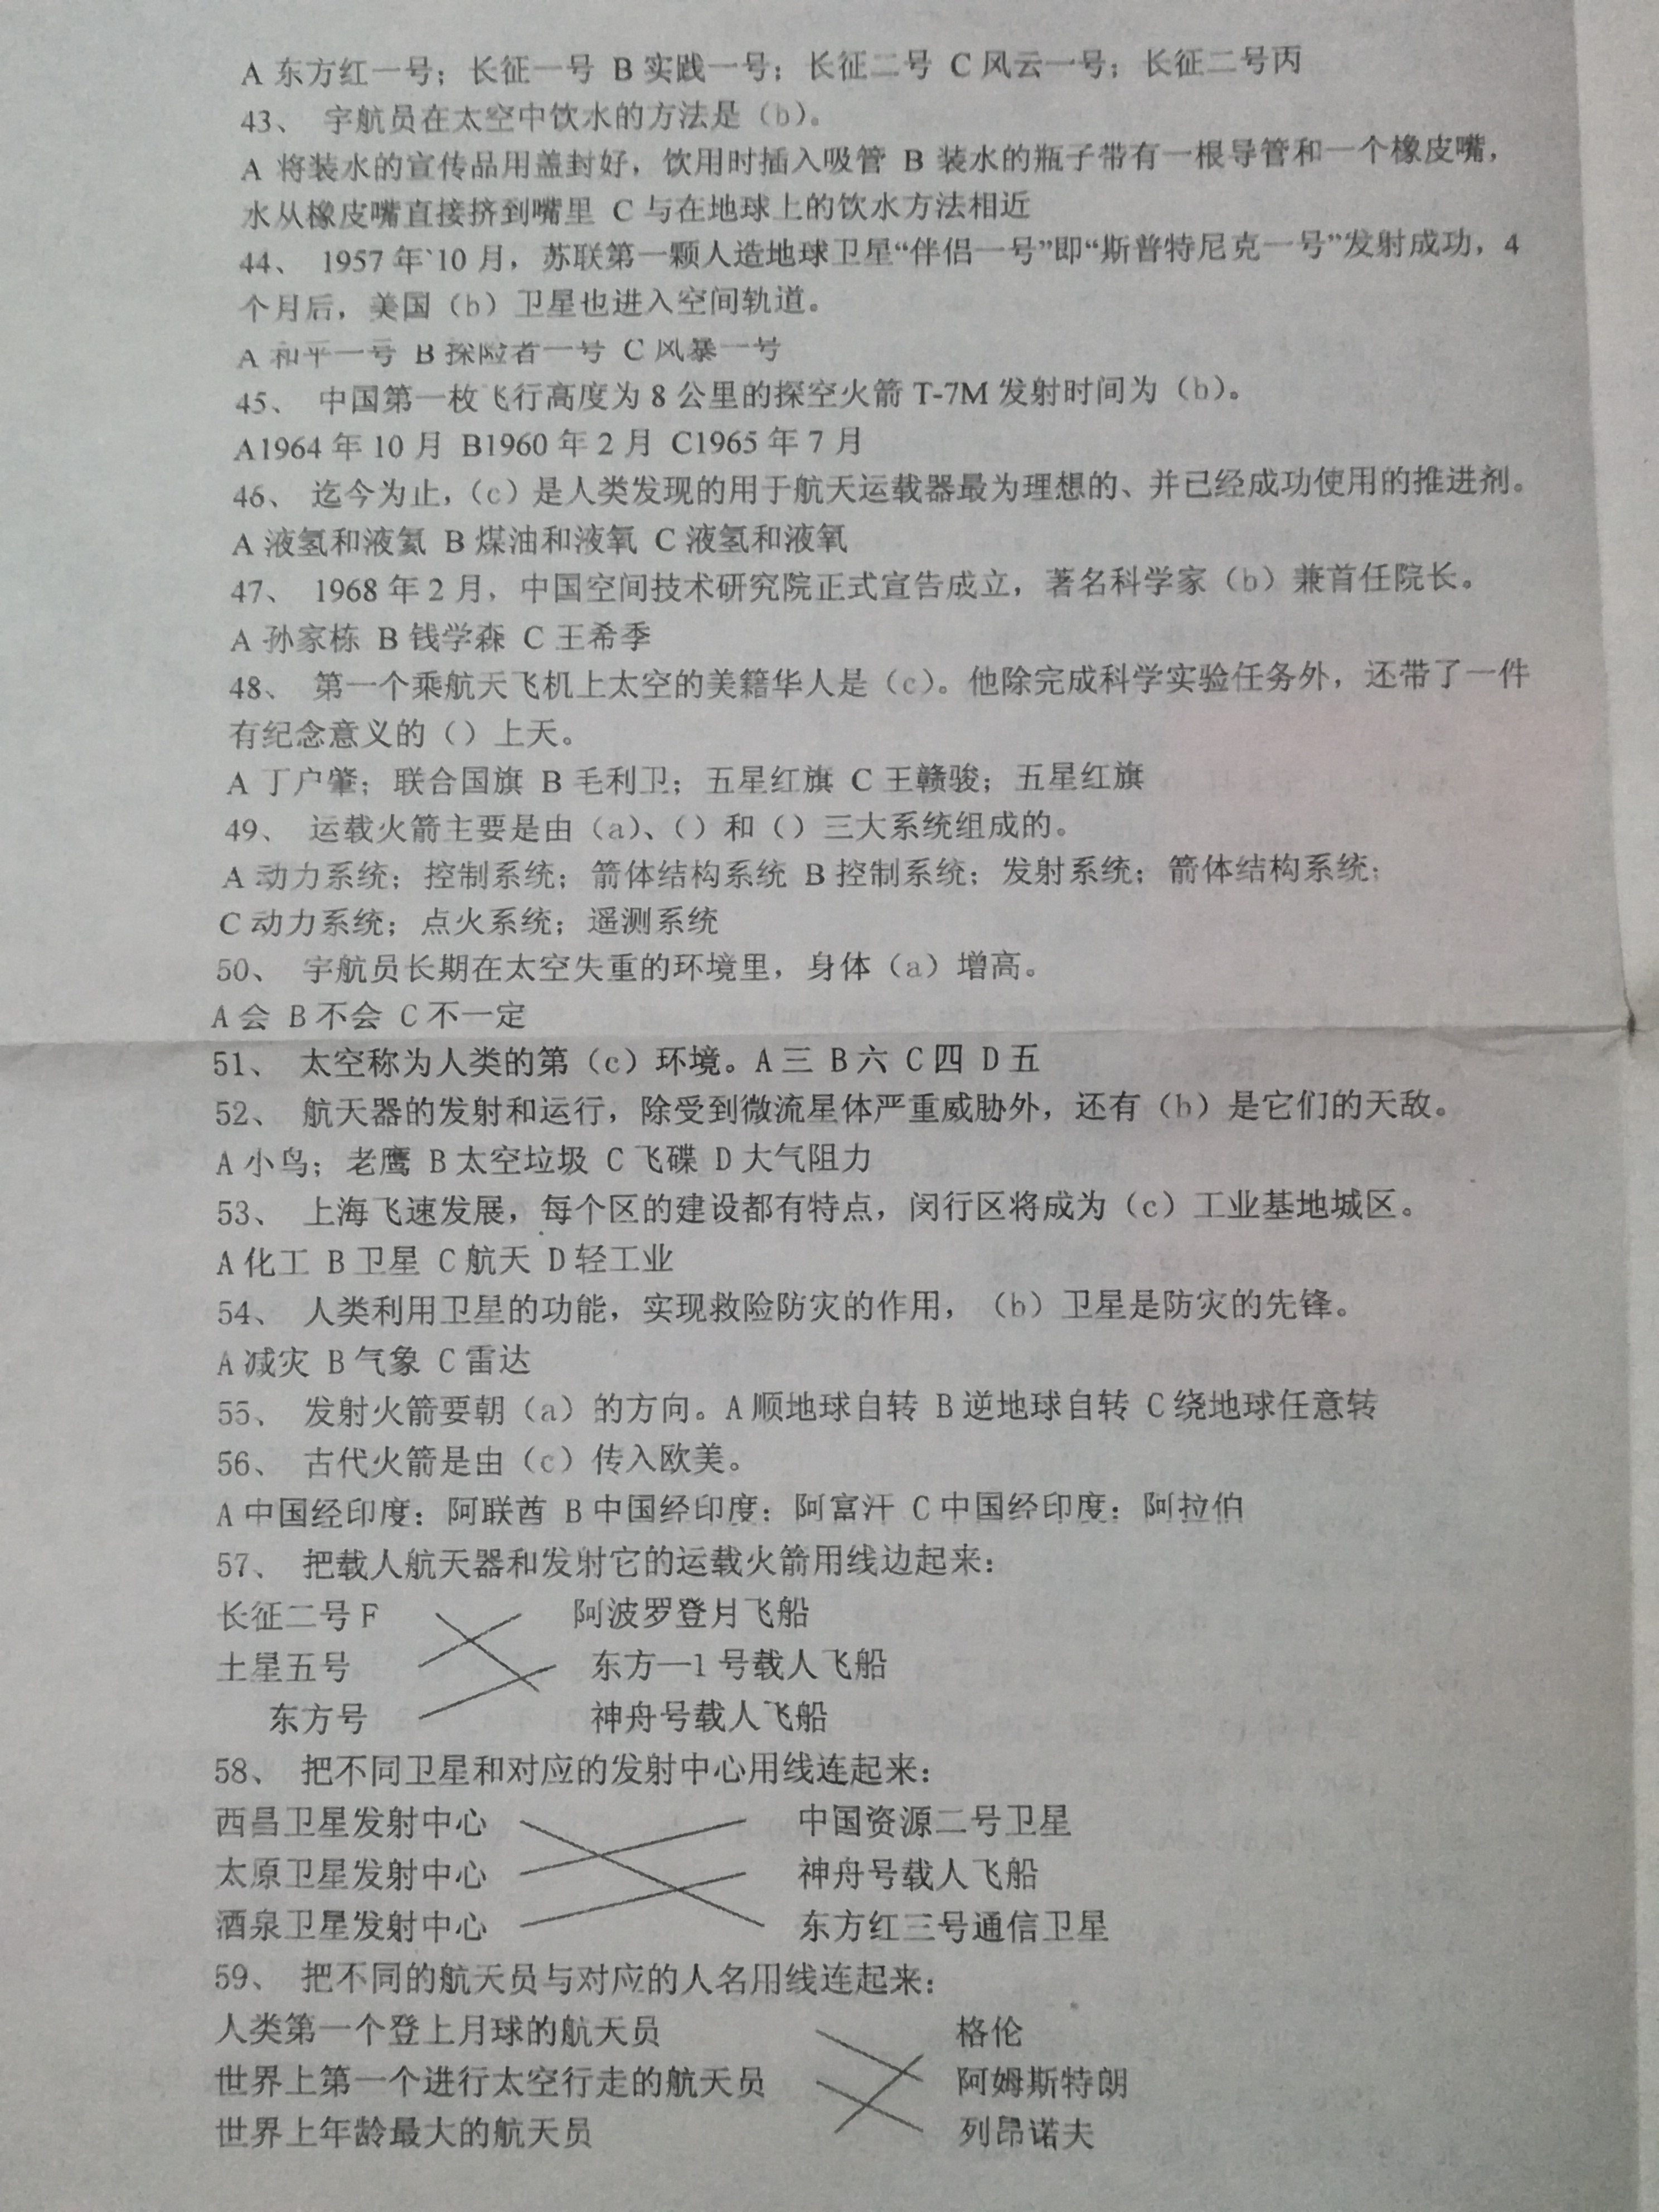 A 东方红一号；长征一号 B 实践一号；长征二号 C 风云一号；长征二号丙
43、 宇航员在太空中饮水的方法是（b）。
A 将装水的宣传品用盖封好，饮用时插入吸管 B 装水的瓶子带有一根导管和一个橡皮嘴，
水从橡皮嘴直接挤到嘴里 C 与在地球上的饮水方法相近
44、 1957 年`10 月，苏联第一颗人造地球卫星“伴侣一号”即“斯普特尼克一号”发射成功，4
个月后，美国（b）卫星也进入空间轨道。
A 和平一号 B 探险者一号 C 风暴一号
45、 中国第一枚飞行高度为 8 公里的探空火箭 T-7M 发射时间为（b）。
A1964 年 10 月 B1960 年 2 月 C1965 年 7 月
46、 迄今为止，（c）是人类发现的用于航天运载器最为理想的、并已经成功使用的推进剂。
A 液氢和液氦 B 煤油和液氧 C 液氢和液氧
47、 1968 年 2 月，中国空间技术研究院正式宣告成立，著名科学家（b）兼首任院长。
A 孙家栋 B 钱学森 C 王希季
48、 第一个乘航天飞机上太空的美籍华人是（c）。他除完成科学实验任务外，还带了一件
有纪念意义的（）上天。
A 丁户肇；联合国旗 B 毛利卫；五星红旗 C 王赣骏；五星红旗
49、 运载火箭主要是由（a）、（）和（）三大系统组成的。
A 动力系统；控制系统；箭体结构系统 B 控制系统；发射系统；箭体结构系统；
C 动力系统；点火系统；遥测系统
50、 宇航员长期在太空失重的环境里，身体（a）增高。
A 会 B 不会 C 不一定
51、 太空称为人类的第（c）环境。A 三 B 六 C 四 D 五
52、 航天器的发射和运行，除受到微流星体严重威胁外，还有（b）是它们的天敌。
A 小鸟；老鹰 B 太空垃圾 C 飞碟 D 大气阻力
53、 上海飞速发展，每个区的建设都有特点，闵行区将成为（c）工业基地城区。
A 化工 B 卫星 C 航天 D 轻工业
54、 人类利用卫星的功能，实现救险防灾的作用，（b）卫星是防灾的先锋。
A 减灾 B 气象 C 雷达
55、 发射火箭要朝（a）的方向。A 顺地球自转 B 逆地球自转 C 绕地球任意转
56、 古代火箭是由（c）传入欧美。
A 中国经印度：阿联酋 B 中国经印度：阿富汗 C 中国经印度：阿拉伯
57、 把载人航天器和发射它的运载火箭用线边起来：
长征二号 F 阿波罗登月飞船
土星五号 东方—1 号载人飞船
东方号 神舟号载人飞船
58、 把不同卫星和对应的发射中心用线连起来：
西昌卫星发射中心 中国资源二号卫星
太原卫星发射中心 神舟号载人飞船
酒泉卫星发射中心 东方红三号通信卫星
59、 把不同的航天员与对应的人名用线连起来：
人类第一个登上月球的航天员 格伦
世界上第一个进行太空行走的航天员 阿姆斯特朗
世界上年龄最大的航天员 列昂诺夫